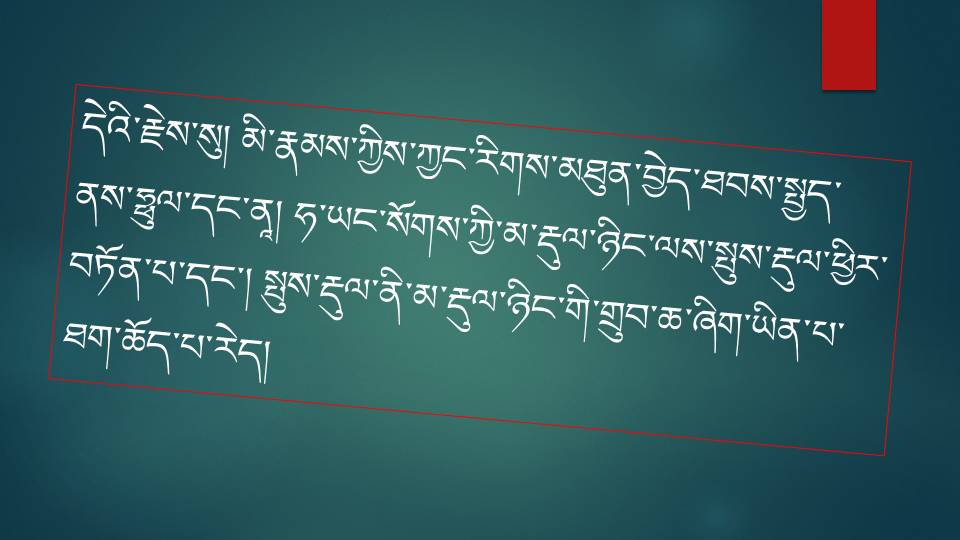 དེའི་རྗེས་སུ། མི་རྣམས་ཀྱིས་ཀྱང་རིགས་མཐུན་བྱེད་ཐབས་སྤྱད་
ནས་ཧྥུལ་དང་ནཱ། ཧ་ཡང་སོགས་ཀྱི་མ་རྡུལ་ཉིང་ལས་སྤུས་རྡུལ་ཕྱིར་
བཏོན་པ་དང་། སྤུས་རྡུལ་ནི་མ་རྡུལ་ཉིང་གི་གྲུབ་ཆ་ཞིག་ཡིན་པ་
ཐག་ཆོད་པ་རེད།